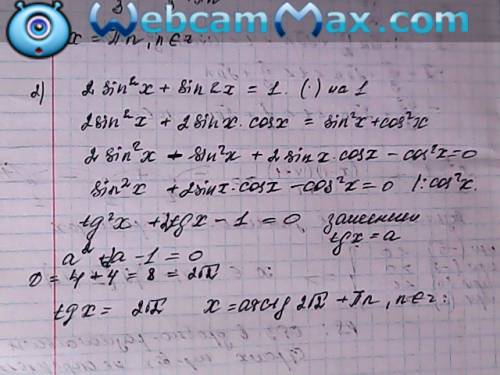 WebcamMax.com
x = πn, n∈z:
2) 2sin²x + sin2x = 1. (·) на 1
2sin²x + 2sinx·cosx = sin²x+cos²x
2sin²x - sin²x + 2sinx·cosx - cos²x=0
sin²x + 2sinx·cosx - cos²x=0 |:cos²x.
tg²x + 2tgx - 1 = 0 заменим
tgx = a
a² + 2a - 1 = 0
D = 4 + 4 = 8 = 2√2
tgx = 2√2 x = arctg 2√2 + πn, n∈z: